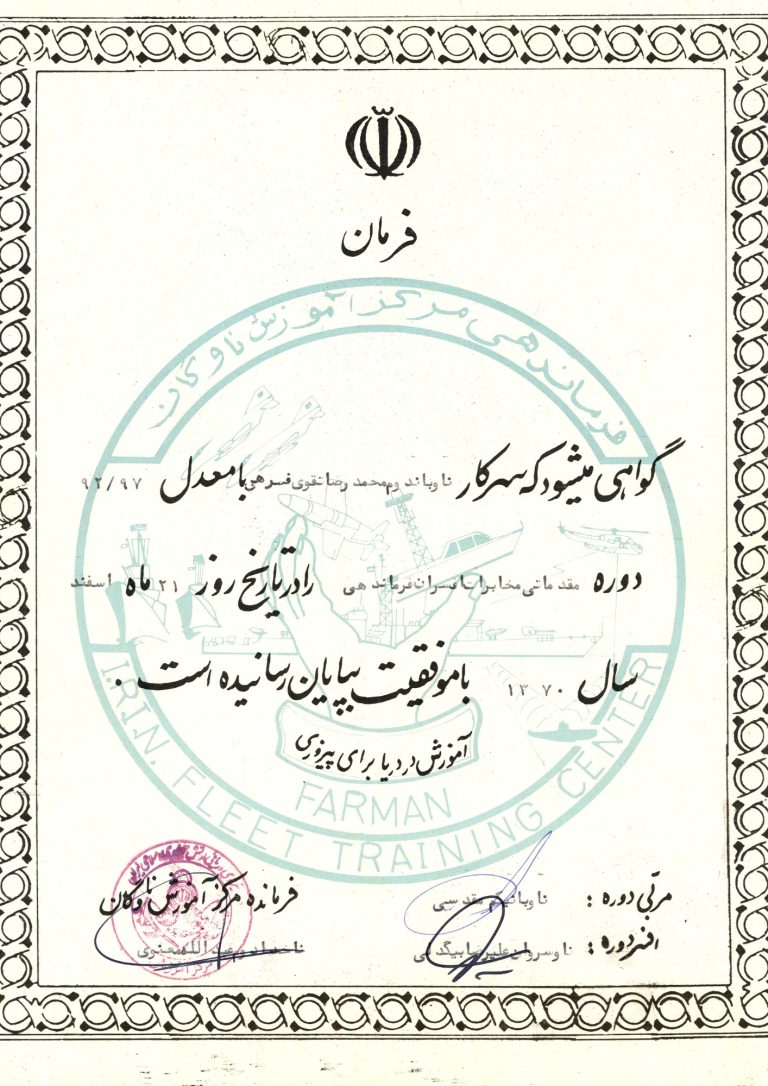 فرمان
فرماندهی مرکز آموزش ناوگان
گواهی میشود که سرکار ناوباندوم محمد رضا تقوی فسرهی با معدل ۹۲/۹۷
دوره مقدماتی مخابرات افسران فرماندهی را در تاریخ روز ۲۱ ماه اسفند
سال ۱۳۷۰ با موفقیت بپایان رسانیده است .
آموزش در دریا برای پیروزی
FARMAN
I.R.I.N. FLEET TRAINING CENTER
مربی دوره : ناوبانیکم قدسی
افسر دوره : ناوسروان علیرضا بیگدلی
فرمانده مرکز آموزش ناوگان
ناخدا دوم معنوی